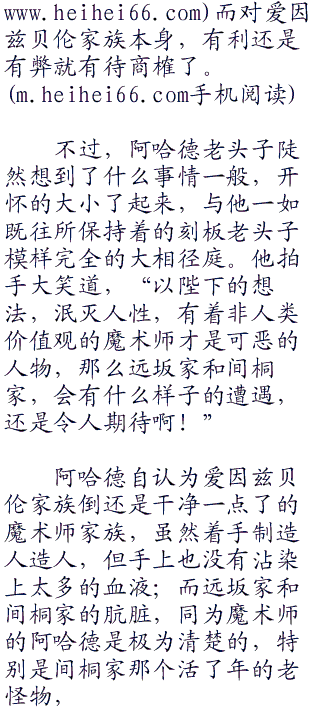 www.heihei66.com)而对爱因
兹贝伦家族本身，有利还是
有弊就有待商榷了。
(m.heihei66.com手机阅读)
不过，阿哈德老头子陡
然想到了什么事情一般，开
怀的大小了起来，与他一如
既往所保持着的刻板老头子
模样完全的大相径庭。他拍
手大笑道，“以陛下的想
法，泯灭人性，有着非人类
价值观的魔术师才是可恶的
人物，那么远坂家和间桐
家，会有什么样子的遭遇，
还是令人期待啊！”
阿哈德自认为爱因兹贝
伦家族倒还是干净一点了的
魔术师家族，虽然着手制造
人造人，但手上也没有沾染
上太多的血液；而远坂家和
间桐家的肮脏，同为魔术师
的阿哈德是极为清楚的，特
别是间桐家那个活了年的老
怪物，